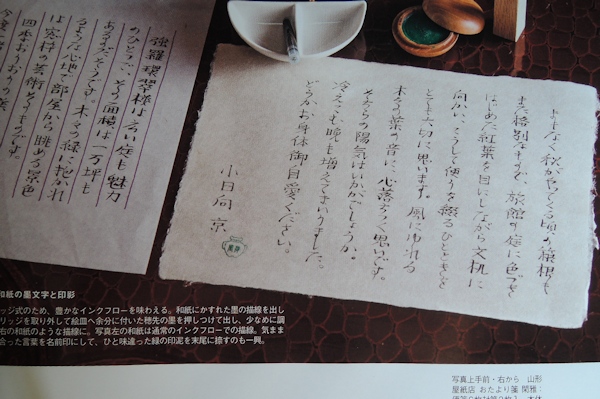 まもなく秋がやってくる頃の箱根も
また格別なもので、旅館の庭に色づき
はじめた紅葉を目にしながら文机に
向かい、こうして便りを綴るひとときを
とても大切に思います。風にゆれる
木々の葉の音に、心落ちつく思いです。
そちらの陽気はいかがでしょうか。
冷えこむ晩も増えてまいりました。
どうかお身体御自愛ください。
小日向 京
強羅環翠楼は古い庭も魅力
のひとつ、その面積は一万坪も
あるのだそうです。木々の緑に抱かれ
るような心地で部屋から眺める景色
は窓枠の芸術そのものです。
四季おりおりの
今度
和紙の墨文字と印影
ッジ式のため、豊かなインクフローを味わえる。和紙にかすれた墨の描線を出し
リッジを取り外して絵皿へ余分に付いた穂先の墨を押しつけて出し、少なめに調
右の和紙のような描線に。写真左の和紙は通常のインクフローでの描線。気まま
合った言葉を名前印にして、ひと味違った緑の印泥を末尾に捺すのも一興。
写真上手前・右から 山形
屋紙店 おたより箋 閑雅：